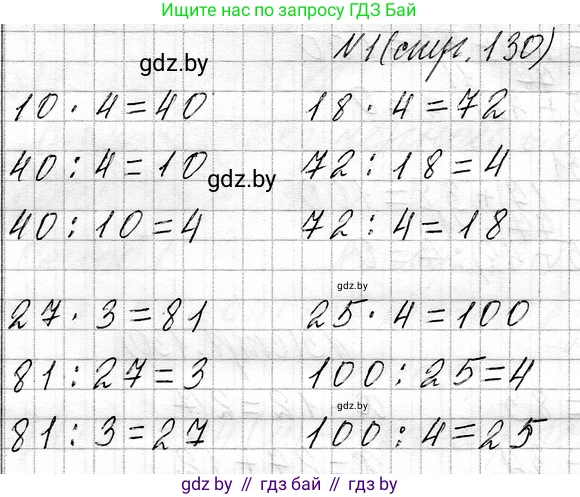 Ищите нас по запросу ГДЗ Бай
gdz.by
№1(стр. 130)
10 · 4 = 40
18 · 4 = 72
40 : 4 = 10
72 : 18 = 4
gdz.by
40 : 10 = 4
72 : 4 = 18
gdz.by
27 · 3 = 81
25 · 4 = 100
81 : 27 = 3
100 : 25 = 4
gdz.by
81 : 3 = 27
100 : 4 = 25
gdz.by // gdz.by // gdz.by